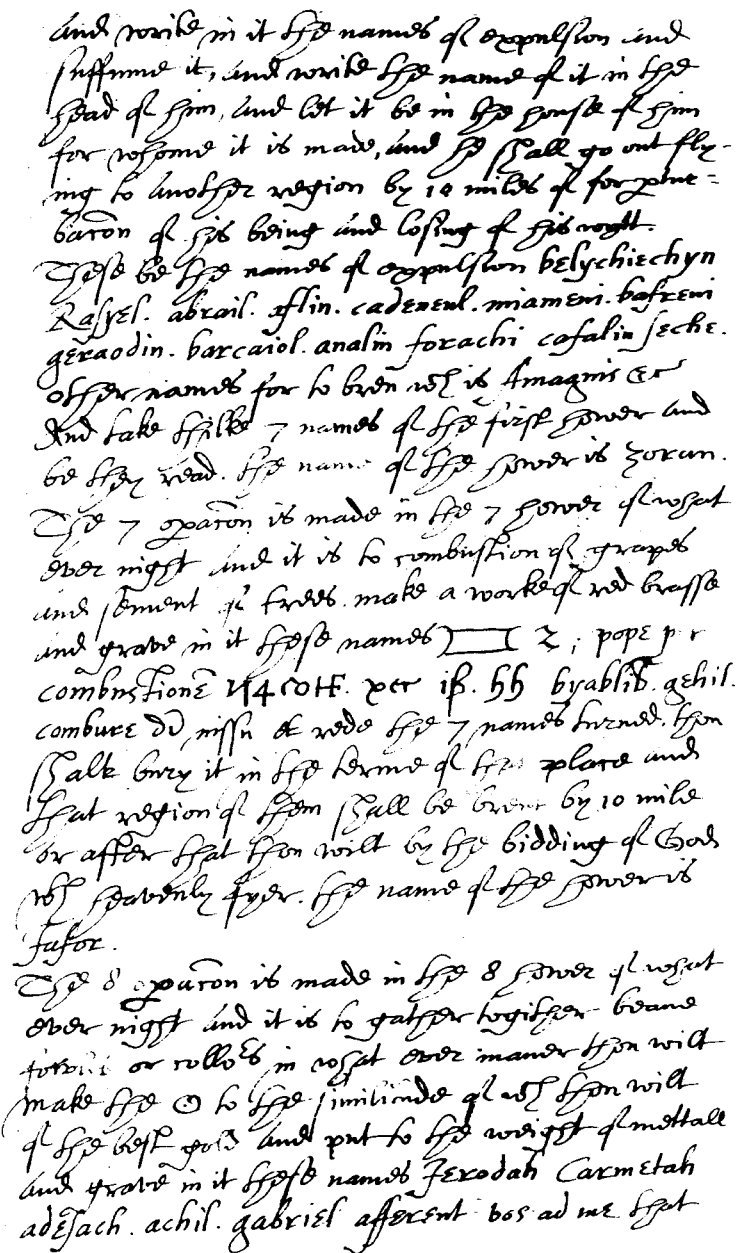 and write in it the names of expulsion and
suffume it, and write the name of it in the
head of him, and let it be in the house of him
for whome it is made, and he shall go out fly-
ing to another region by 10 miles of
bacōn of his being and losing of his wytt.
These be the names of expulsion belychiechyn
Rassel. abrail. aflin. cadeneul. miameni. bafreni
geraodin. barcaiol. analin forachi cafalin seche.
other names for to bren wch is Amagnis &c
And take thilke 7 names of the first hower and
be they read. the name of the hower is zoran.
The 7 opacōn is made in the 7 hower of what
ever night and it is to combustion of grapes
and sement of trees. make a worke of red brasse
and grave in it these names
combustionē byablib. gehil.
combure nissu et rede the 7 names turned. thou
shalt bury it in the terme of the place and
that region of them shall be brent by 10 mile
or after that thou wilt by the bidding of God
wth heavenly fyer. the name of the hower is
fafor.
The 8 opacōn is made in the 8 hower of what
ever night and it is to gather togither beane
or in what ever maner thou wilt
make the O to the similitude of wch thou wilt
of the best gold and put to the weight of mettall
and grave in it these names Jerodah Carmetah
adesach. achil. gabriel afferent vos ad me that